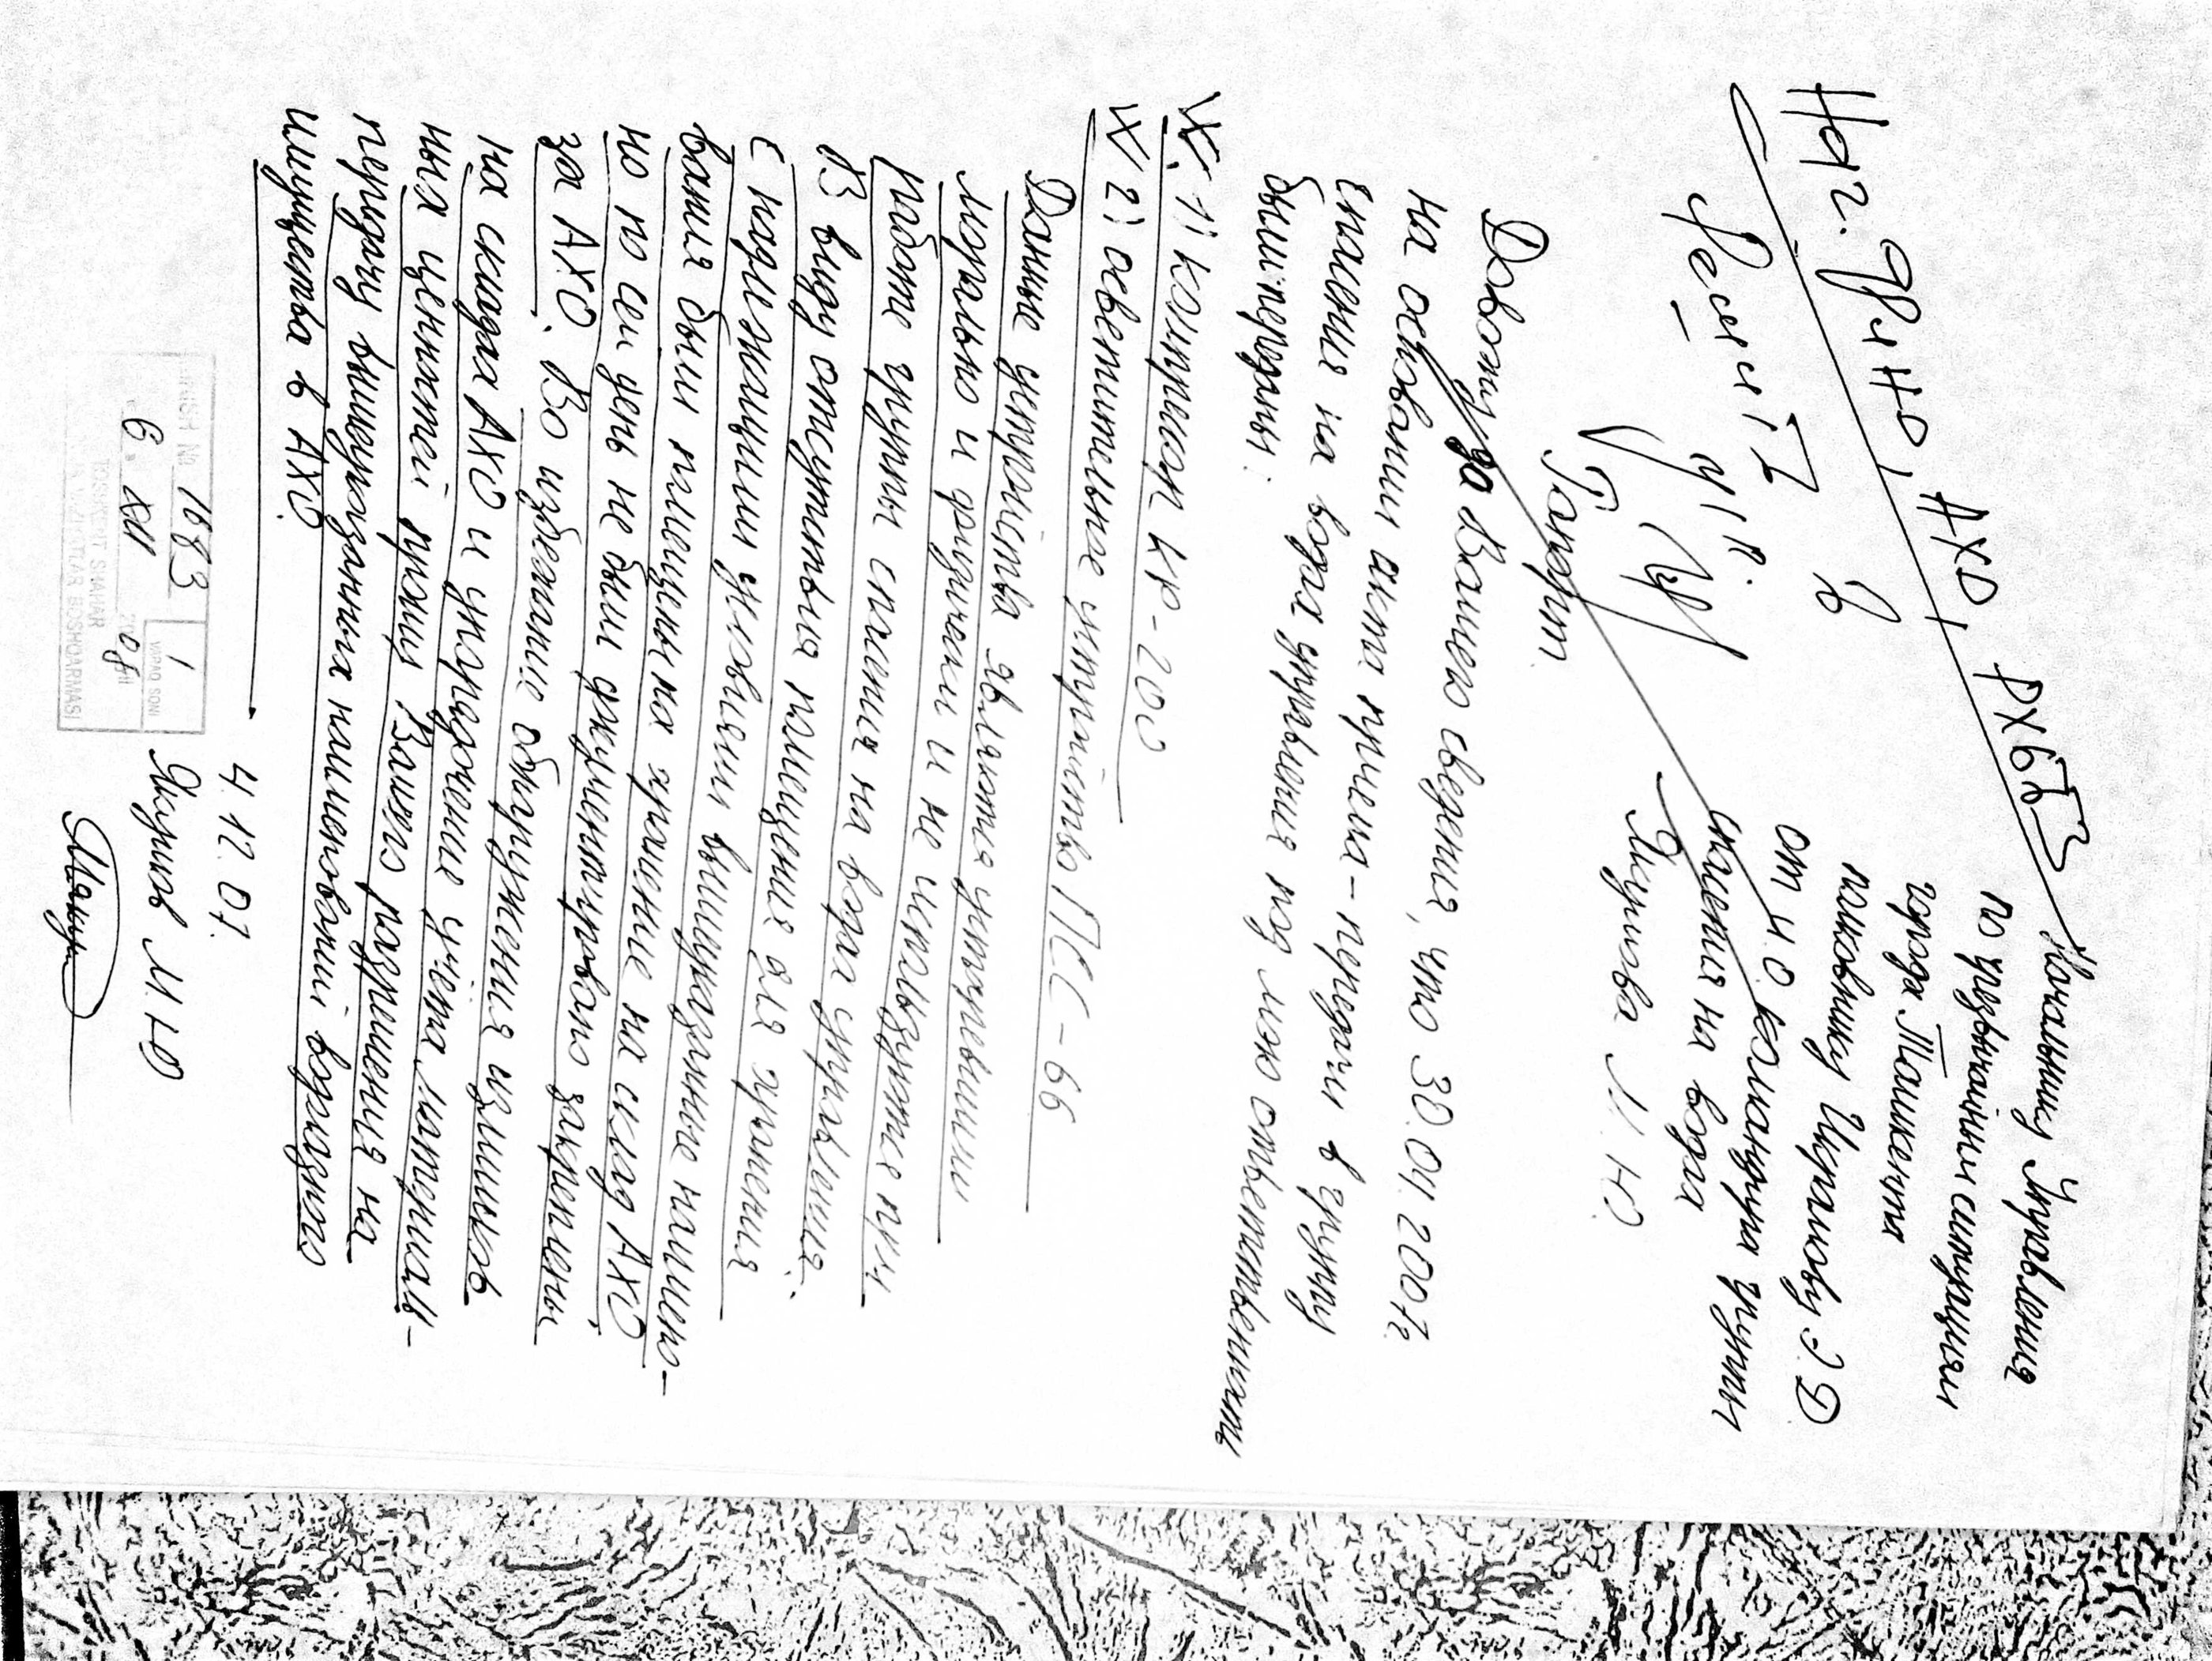 Нач. ФИНО, АХО, РХБЗ
Начальнику Управления
по чрезвычайным ситуациям
города Ташкента
полковнику Икрамову Э.Д
от И.О. командира группы
спасения на водах
Якупова М.Ю.
Рапорт
Довожу до Вашего сведения, что 30.04.2007г.
на основании акта приема-передачи в группу
спасения на водах управления под мою ответственность
были переданы:
1) компрессор КР-200
2) осветительное устройство ПСС-66
Данные устройства являются устаревшими
морально и физически и не используются при
работе группы спасения на водах управления.
В виду отсутствия помещения для хранения
с надлежащими условиями вышеуказанные наимено-
вания были помещены на хранение на склад АХО
но по сей день не были документировано закреплены
за АХО. Во избежание обнаружения излишков
на складах АХО и упорядочение учёта материаль-
ных ценностей прошу Вашего разрешения на
передачу вышеуказанных наименований водолазного
имущества в АХО.
4.12.07.
Якупов М.Ю
KIRISH № 1683
1
VARAQ SONI
6. XII 2007
TOSHKENT SHAHAR
FAVQULODDA VAZIYATLAR BOSHQARMASI